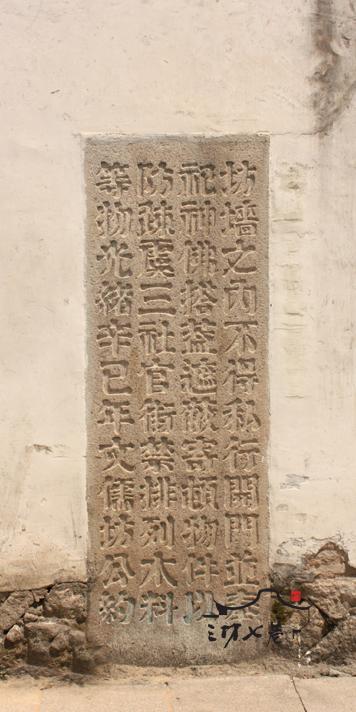 坊墻之內不得私行開門並奉
祀神佛搭蓋遮蔽寄頓物件以
防疎虞三社官街禁排列木料
等物光緒辛巳年文儒坊公約
三坊七巷